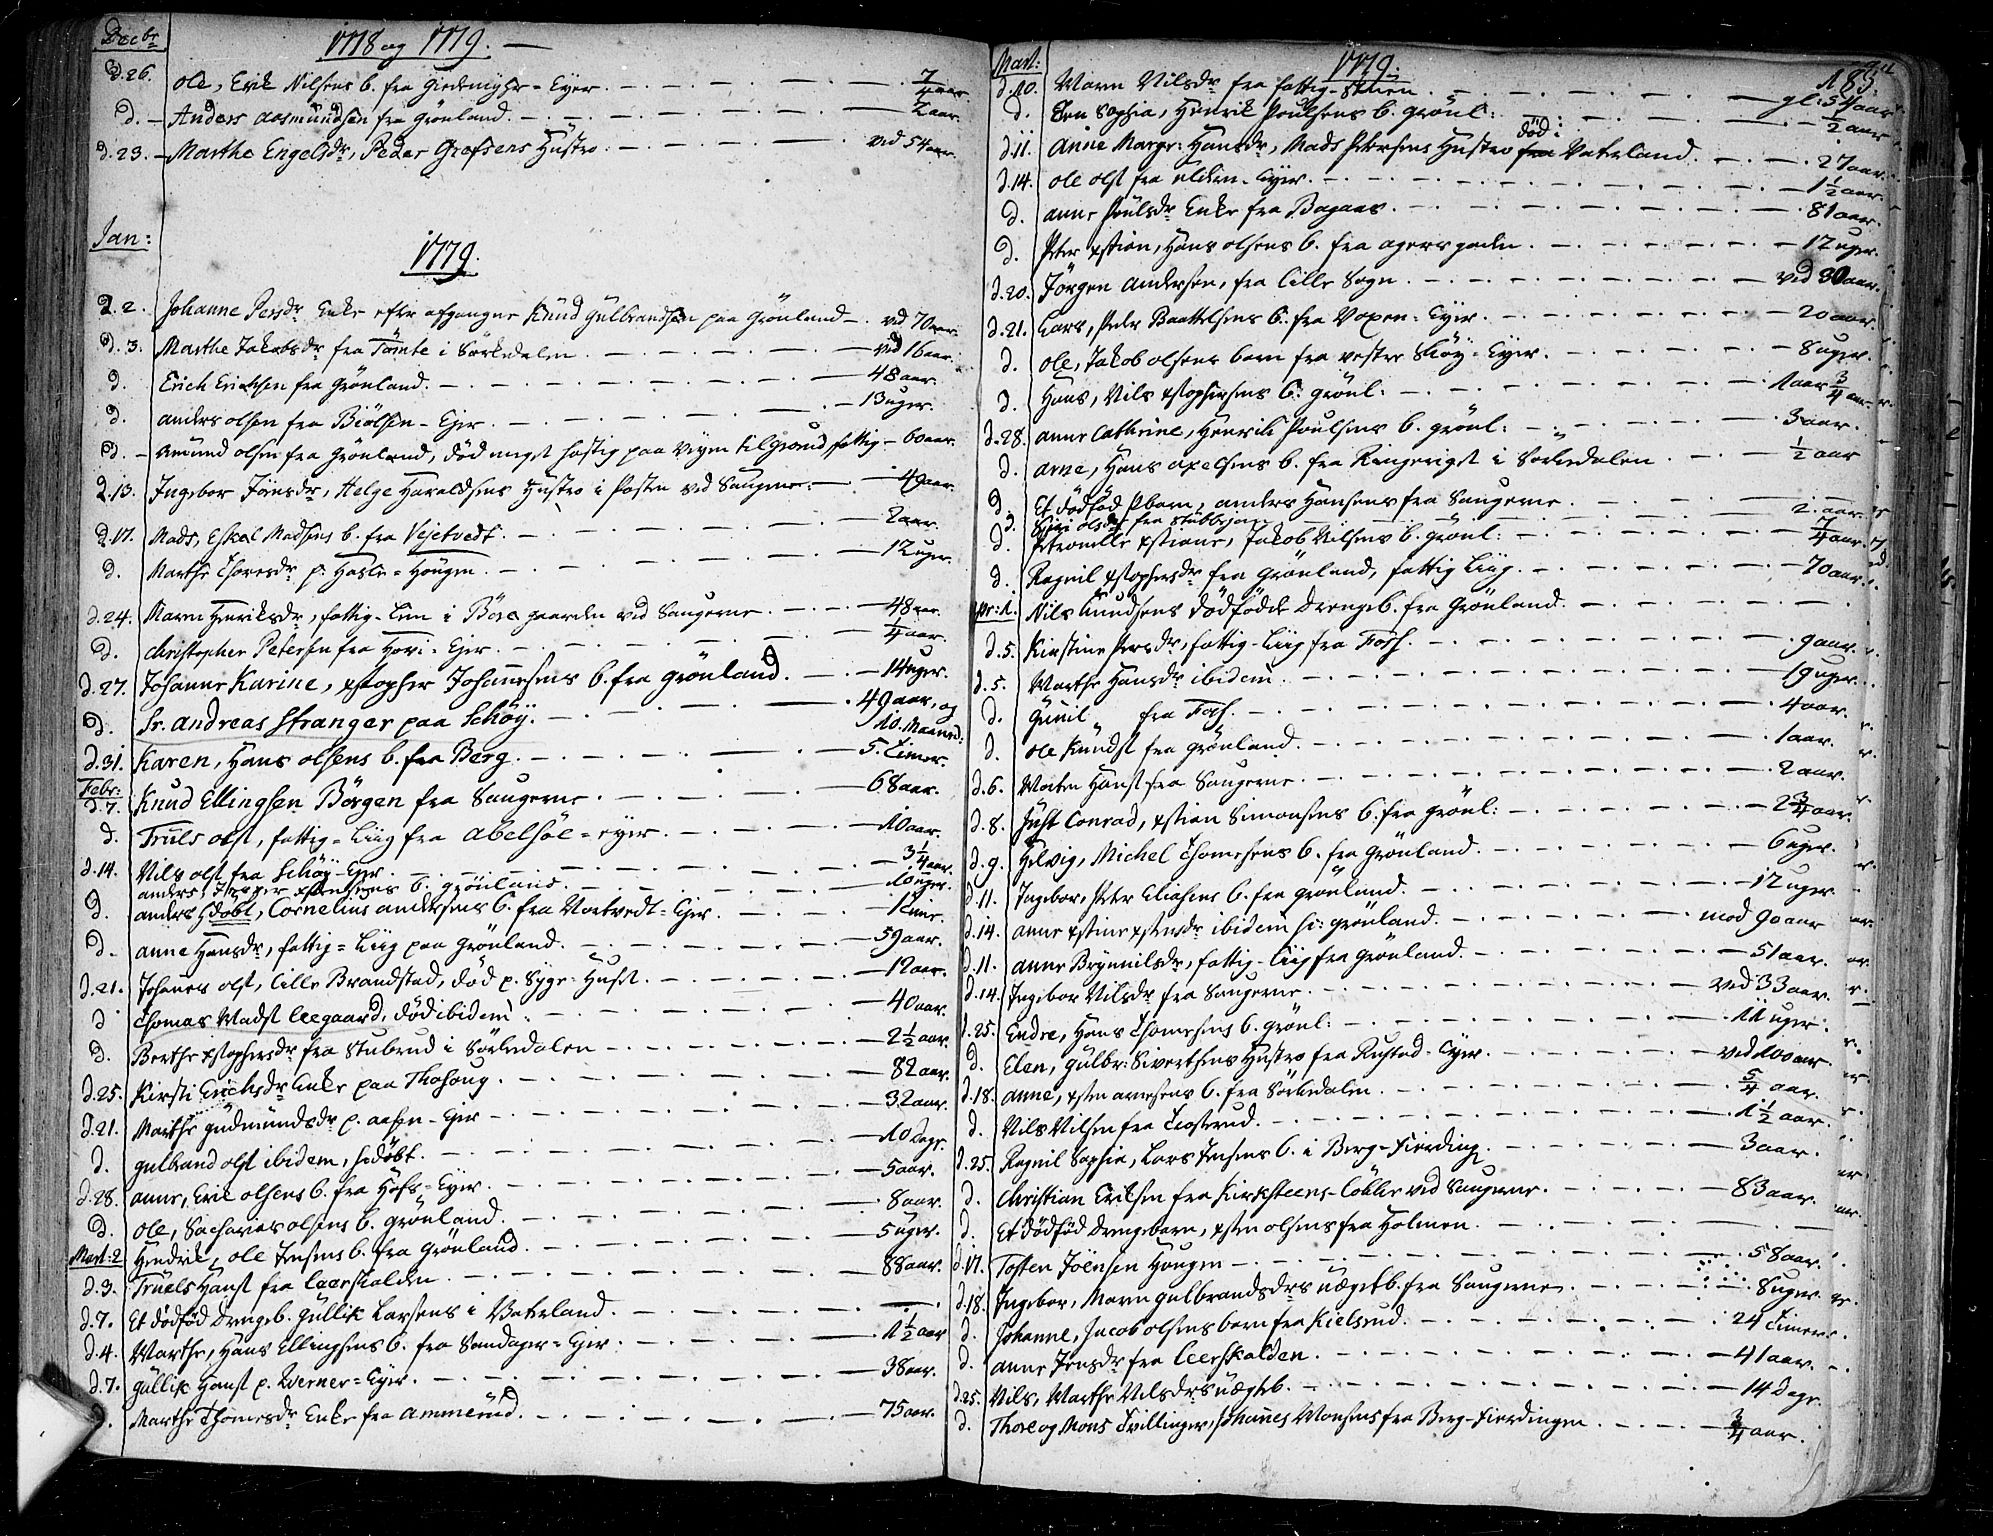 Decbr
1778 og 1779.
d.26. Ole, Erik Nilsens b. fra Giedemyhr-Eyer. 7/4 aar
d. Anders Aasmundsen fra Grönland. 2 aar.
d.23. Marthe Engelsdr, Peder Grefsens Hustro. ved 54 aar.
Jan:
1779.
d.2. Johanne Persdr Enke efter afgangne Knud Gulbrandsen paa Grönland. ved 70 aar.
d.3. Marthe Jakobsdr fra Tömte i Sörkedalen. ved 16 aar.
d. Erich Erichsen fra Grönland. 48 aar.
d. Anders Olsen fra Biölsen-Ejer. 13 uger.
d. Amund Olsen fra Grönland, död meget hastig paa Vejen til Grund, fattig 60 aar.
d.13. Ingebor Jönsdr, Helge Haraldsens Hustro i Pasten ved Saugene. 49 aar.
d.17. Mads, Eskel Madsens b. fra Vejetvedt. 2 aar.
d. Marthe Thoresdr p. Hasle-Hougen. 12 uger.
d.24. Maren Henriksdr, fattig-Lem i Böe gaarden ved Saugerne. 48 aar.
d. Christopher Petersen fra Hovi-Ejer. 1/4 aar.
d.27. Johanne Karine, Xstopher Johannesens b. fra Grönland. 14 uger.
d. Sr. Andreas Stranger paa Schöy. 49 aar, og 10. Maaned:
d.31. Karen, Hans Olsens b. fra Berg. 5. Timer.
Febr:
d.7. Knud Ellingsen Börgen fra Saugerne. 68 aar.
d. Truls Olsl, fattig-Liig fra Abelsöe-eyer. 10 aar.
d.14. Nils Olsl fra Schöy-Ejer. 3 1/4 aar.
Anders, Jesper b. Grönland. 10 uger.
d. Anders Hdöbt, Cornelius Andersens b. fra Vortvedt-Ejer. 1 Time.
d. Anne Hansdr, fattig-Liig paa Grönland. 59 aar.
d.21. Johannes Olsl, Lille Brandstad, död p. Syge-Huset. 12 aar.
d. Thomas Madsl Leegaard, död ibidem. 40 aar.
d. Berthe Xstophersdr fra Stubrud i Sörkedalen. 2 1/2 aar.
d.25. Kirsti Erichsdr Enke paa Thosoug. 82 aar.
d.21. Marthe Gudmundsdr p. Aasen-Ejer. 32 aar.
d. Gulbrand Olsl ibidem, hdöbt. 10 Dage.
d.28. Anne, Erik Olsens b. fra Hofs-Eyer. 5 aar.
d. Ole, Sacharias Olsens b. Grönland. 8 aar.
Mart:2 Hendrik, Ole Jensens b. fra Grönland. 5 uger.
d.3. Truels Hansl fra Leerskalden. 88 aar.
d.7. Et dödföd Drengeb. Gullik Larsens i Vaterland.
d.4. Marthe, Hans Ellingsens b. fra Sandager-Ejer. 1 1/2 aar
d.7. Gullik Hansl p. Werner-Eyer. 38 aar.
Marthe Thomesdr Enke fra Ammerud. 75 aar.
Mart:
1779.
183.
d.10. Maren Nilsdr fra fattig-Stuen. gl: 54 aar
d. Sophia, Henrik Poulsens b. Grönl: 1/2 aar
d.11. Anne Margr: Hansdr, Mads Petersens Hustro död i Vaterland. 27 aar.
d.14. Ole Olsl fra Ulden-Ejer. 1 1/2 aar.
d. Anne Poulsdr Enke fra Bagaas. 81 aar.
d. Peter Xstian, Hans Olsens b. fra Agersgaden. 12 uger.
d.20. Jörgen Andersen, fra Lille Sogn. ved 30 aar.
d.21. Lars, Peder Baattelsens b. fra Voxen-Ejer. 20 aar.
d. Ole, Jakob Olsens barn fra Vestre Schöy-Ejer. 8 uger.
d. Hans, Nils Xstophersens b. Grönl: 1 aar 3/4 aar.
d.28. Anne Cathrine, Henrik Poulsens b. Grönl: 3 aar.
d. Arne, Hans Axelsens b. fra Ringeriget i Sörkedalen. 1/2 aar
d. Et dödföd Pbarn, Anders Hansens fra Saugerne.
d. Siri Olsdr fra Stubberjon 2. aar.
d. Petronelle Xstiane, Jakob Nilsens b. Grönl: 7/4 aar.
d. Ragnil Xstophersdr fra Grönland, fattig Liig. 70 aar.
Apr:1. Nils Knudsens dödfödde Drengeb. fra Grönland.
d.5. Kirstine Persdr, fattig-Liig fra Foss. 9 aar.
d.5. Marthe Hansdr ibidem. 19 uger.
d. Gunil „ fra Foss. 4 aar.
d. Ole Knudsl fra Grönland. 1 aar.
d.6. Morten Hansl fra Saugerne. 2 aar.
d.8. Just Conrad, Xstian Simonsens b. fra Grönl: 2 3/4 aar.
d.9. Helvig, Michel Thomesens b. fra Grönland. 6 uger.
d.11. Ingebor, Peter Eliasens b. fra Grönland. 12 uger.
d.14. Anne Xstine Xstensdr ibidem h: Grönland. mod 90 aar
d.11. Anne Brynnilsdr, fattig-Liig fra Grönland. 51 aar.
d.14. Ingebor Nilsdr fra Saugerne. ved 33 aar.
d.25. Endre, Hans Thomesens b. Grönl: 11 uger.
d. Elen, Gulbr: Siverthsens Hustro fra Rustad-Ejer. ved 100 aar
d.18. Anne, Xsten Arnesens b. fra Sörkedalen. 5/4 aar.
d. Nils Nilsen fra Tiosterud. 1 1/2 aar.
d.25. Ragnil Sophia, Lars Jensens b. i Berg-Fierding. 3 aar.
d. Christian Eriksen fra Kirksteens-Lökke ved Saugerne. 83 aar.
d. Et dödföd Drengebarn, Xsten Olsens fra Holmen.
d.17. Tosten Joensen Hougen 58 aar.
d.18. Ingebor, Maren Gulbrandsdrs uægteb. fra Saugerne. 8 uger.
d. Johanne, Jacob Olsens barn fra Kielsrud. 24 Timer.
d. Anne Jensdr fra Leerskalden. 41 aar.
d.25. Nils, Marthe Nilsdrs uægteb. 14 Dage.
d. Thore og Mons Tvillinger, Johannes Monsens fra Berg-Fierdingen 3/4 aar.